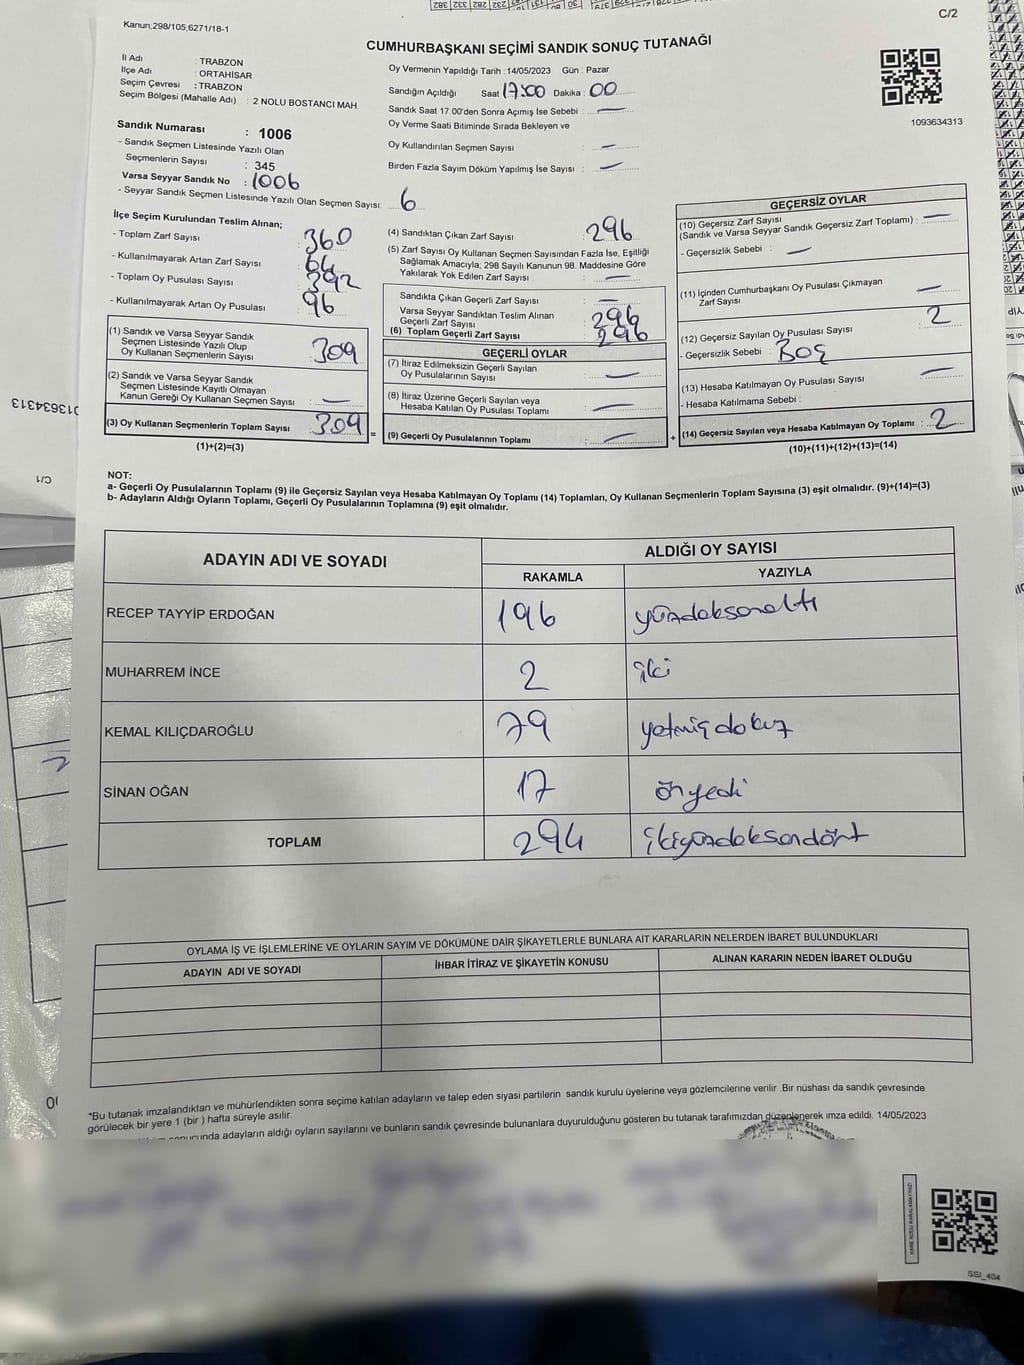 Kanun;298/105;6271/18-1
C/2
CUMHURBAŞKANI SEÇİMİ SANDIK SONUÇ TUTANAĞI
İl Adı : TRABZON
İlçe Adı : ORTAHİSAR
Seçim Çevresi : TRABZON
Seçim Bölgesi (Mahalle Adı) : 2 NOLU BOSTANCI MAH.
Oy Vermenin Yapıldığı Tarih : 14/05/2023 Gün : Pazar
Sandığın Açıldığı Saat 17:00 Dakika : 00
Sandık Saat 17.00'den Sonra Açımış İse Sebebi : —
Oy Verme Saati Bitiminde Sırada Bekleyen ve
Oy Kullandırılan Seçmen Sayısı : —
Birden Fazla Sayım Döküm Yapılmış İse Sayısı : —
1093634313
Sandık Numarası : 1006
- Sandık Seçmen Listesinde Yazılı Olan
Seçmenlerin Sayısı : 345
Varsa Seyyar Sandık No : 1006
- Seyyar Sandık Seçmen Listesinde Yazılı Olan Seçmen Sayısı: 6
İlçe Seçim Kurulundan Teslim Alınan;
- Toplam Zarf Sayısı : 360
- Kullanılmayarak Artan Zarf Sayısı : 64
- Toplam Oy Pusulası Sayısı : 392
- Kullanılmayarak Artan Oy Pusulası : 96
(1) Sandık ve Varsa Seyyar Sandık
Seçmen Listesinde Yazılı Olup
Oy Kullanan Seçmenlerin Sayısı : 309
(2) Sandık ve Varsa Seyyar Sandık
Seçmen Listesinde Kayıtlı Olmayan
Kanun Gereği Oy Kullanan Seçmen Sayısı : —
(3) Oy Kullanan Seçmenlerin Toplam Sayısı : 309
(1)+(2)=(3)
(4) Sandıktan Çıkan Zarf Sayısı : 296
(5) Zarf Sayısı Oy Kullanan Seçmen Sayısından Fazla İse, Eşitliği
Sağlamak Amacıyla, 298 Sayılı Kanunun 98. Maddesine Göre
Yakılarak Yok Edilen Zarf Sayısı : —
Sandıkta Çıkan Geçerli Zarf Sayısı : —
Varsa Seyyar Sandıktan Teslim Alınan
Geçerli Zarf Sayısı : 296
(6) Toplam Geçerli Zarf Sayısı : 296
GEÇERLİ OYLAR
(7) İtiraz Edilmeksizin Geçerli Sayılan
Oy Pusulalarının Sayısı : —
(8) İtiraz Üzerine Geçerli Sayılan veya
Hesaba Katılan Oy Pusulası Toplamı : —
= (9) Geçerli Oy Pusulalarının Toplamı : —
GEÇERSİZ OYLAR
(10) Geçersiz Zarf Sayısı
(Sandık ve Varsa Seyyar Sandık Geçersiz Zarf Toplamı) : —
- Geçersizlik Sebebi : —
(11) İçinden Cumhurbaşkanı Oy Pusulası Çıkmayan
Zarf Sayısı : —
(12) Geçersiz Sayılan Oy Pusulası Sayısı : 2
- Geçersizlik Sebebi : Boş
(13) Hesaba Katılmayan Oy Pusulası Sayısı : —
- Hesaba Katılmama Sebebi :
+ (14) Geçersiz Sayılan veya Hesaba Katılmayan Oy Toplamı : 2
(10)+(11)+(12)+(13)=(14)
NOT:
a- Geçerli Oy Pusulalarının Toplamı (9) ile Geçersiz Sayılan veya Hesaba Katılmayan Oy Toplamı (14) Toplamları, Oy Kullanan Seçmenlerin Toplam Sayısına (3) eşit olmalıdır. (9)+(14)=(3)
b- Adayların Aldığı Oyların Toplamı, Geçerli Oy Pusulalarının Toplamına (9) eşit olmalıdır.
ADAYIN ADI VE SOYADI
ALDIĞI OY SAYISI
RAKAMLA YAZIYLA
RECEP TAYYİP ERDOĞAN 196 yüzdoksanaltı
MUHARREM İNCE 2 iki
KEMAL KILIÇDAROĞLU 79 yetmişdokuz
SİNAN OĞAN 17 önyedi
TOPLAM 294 ikiyüzdoksandört
OYLAMA İŞ VE İŞLEMLERİNE VE OYLARIN SAYIM VE DÖKÜMÜNE DAİR ŞİKAYETLERLE BUNLARA AİT KARARLARIN NELERDEN İBARET BULUNDUKLARI
ADAYIN ADI VE SOYADI
İHBAR İTİRAZ VE ŞİKAYETİN KONUSU
ALINAN KARARIN NEDEN İBARET OLDUĞU
*Bu tutanak imzalandıktan ve mühürlendikten sonra seçime katılan adayların ve talep eden siyasi partilerin sandık kurulu üyelerine veya gözlemcilerine verilir .Bir nüshası da sandık çevresinde
görülecek bir yere 1 (bir ) hafta süreyle asılır.
adayların aldığı oyların sayılarını ve bunların sandık çevresinde bulunanlara duyurulduğunu gösteren bu tutanak tarafımızdan düzenlenerek imza edildi. 14/05/2023
SSİ_404
C/1